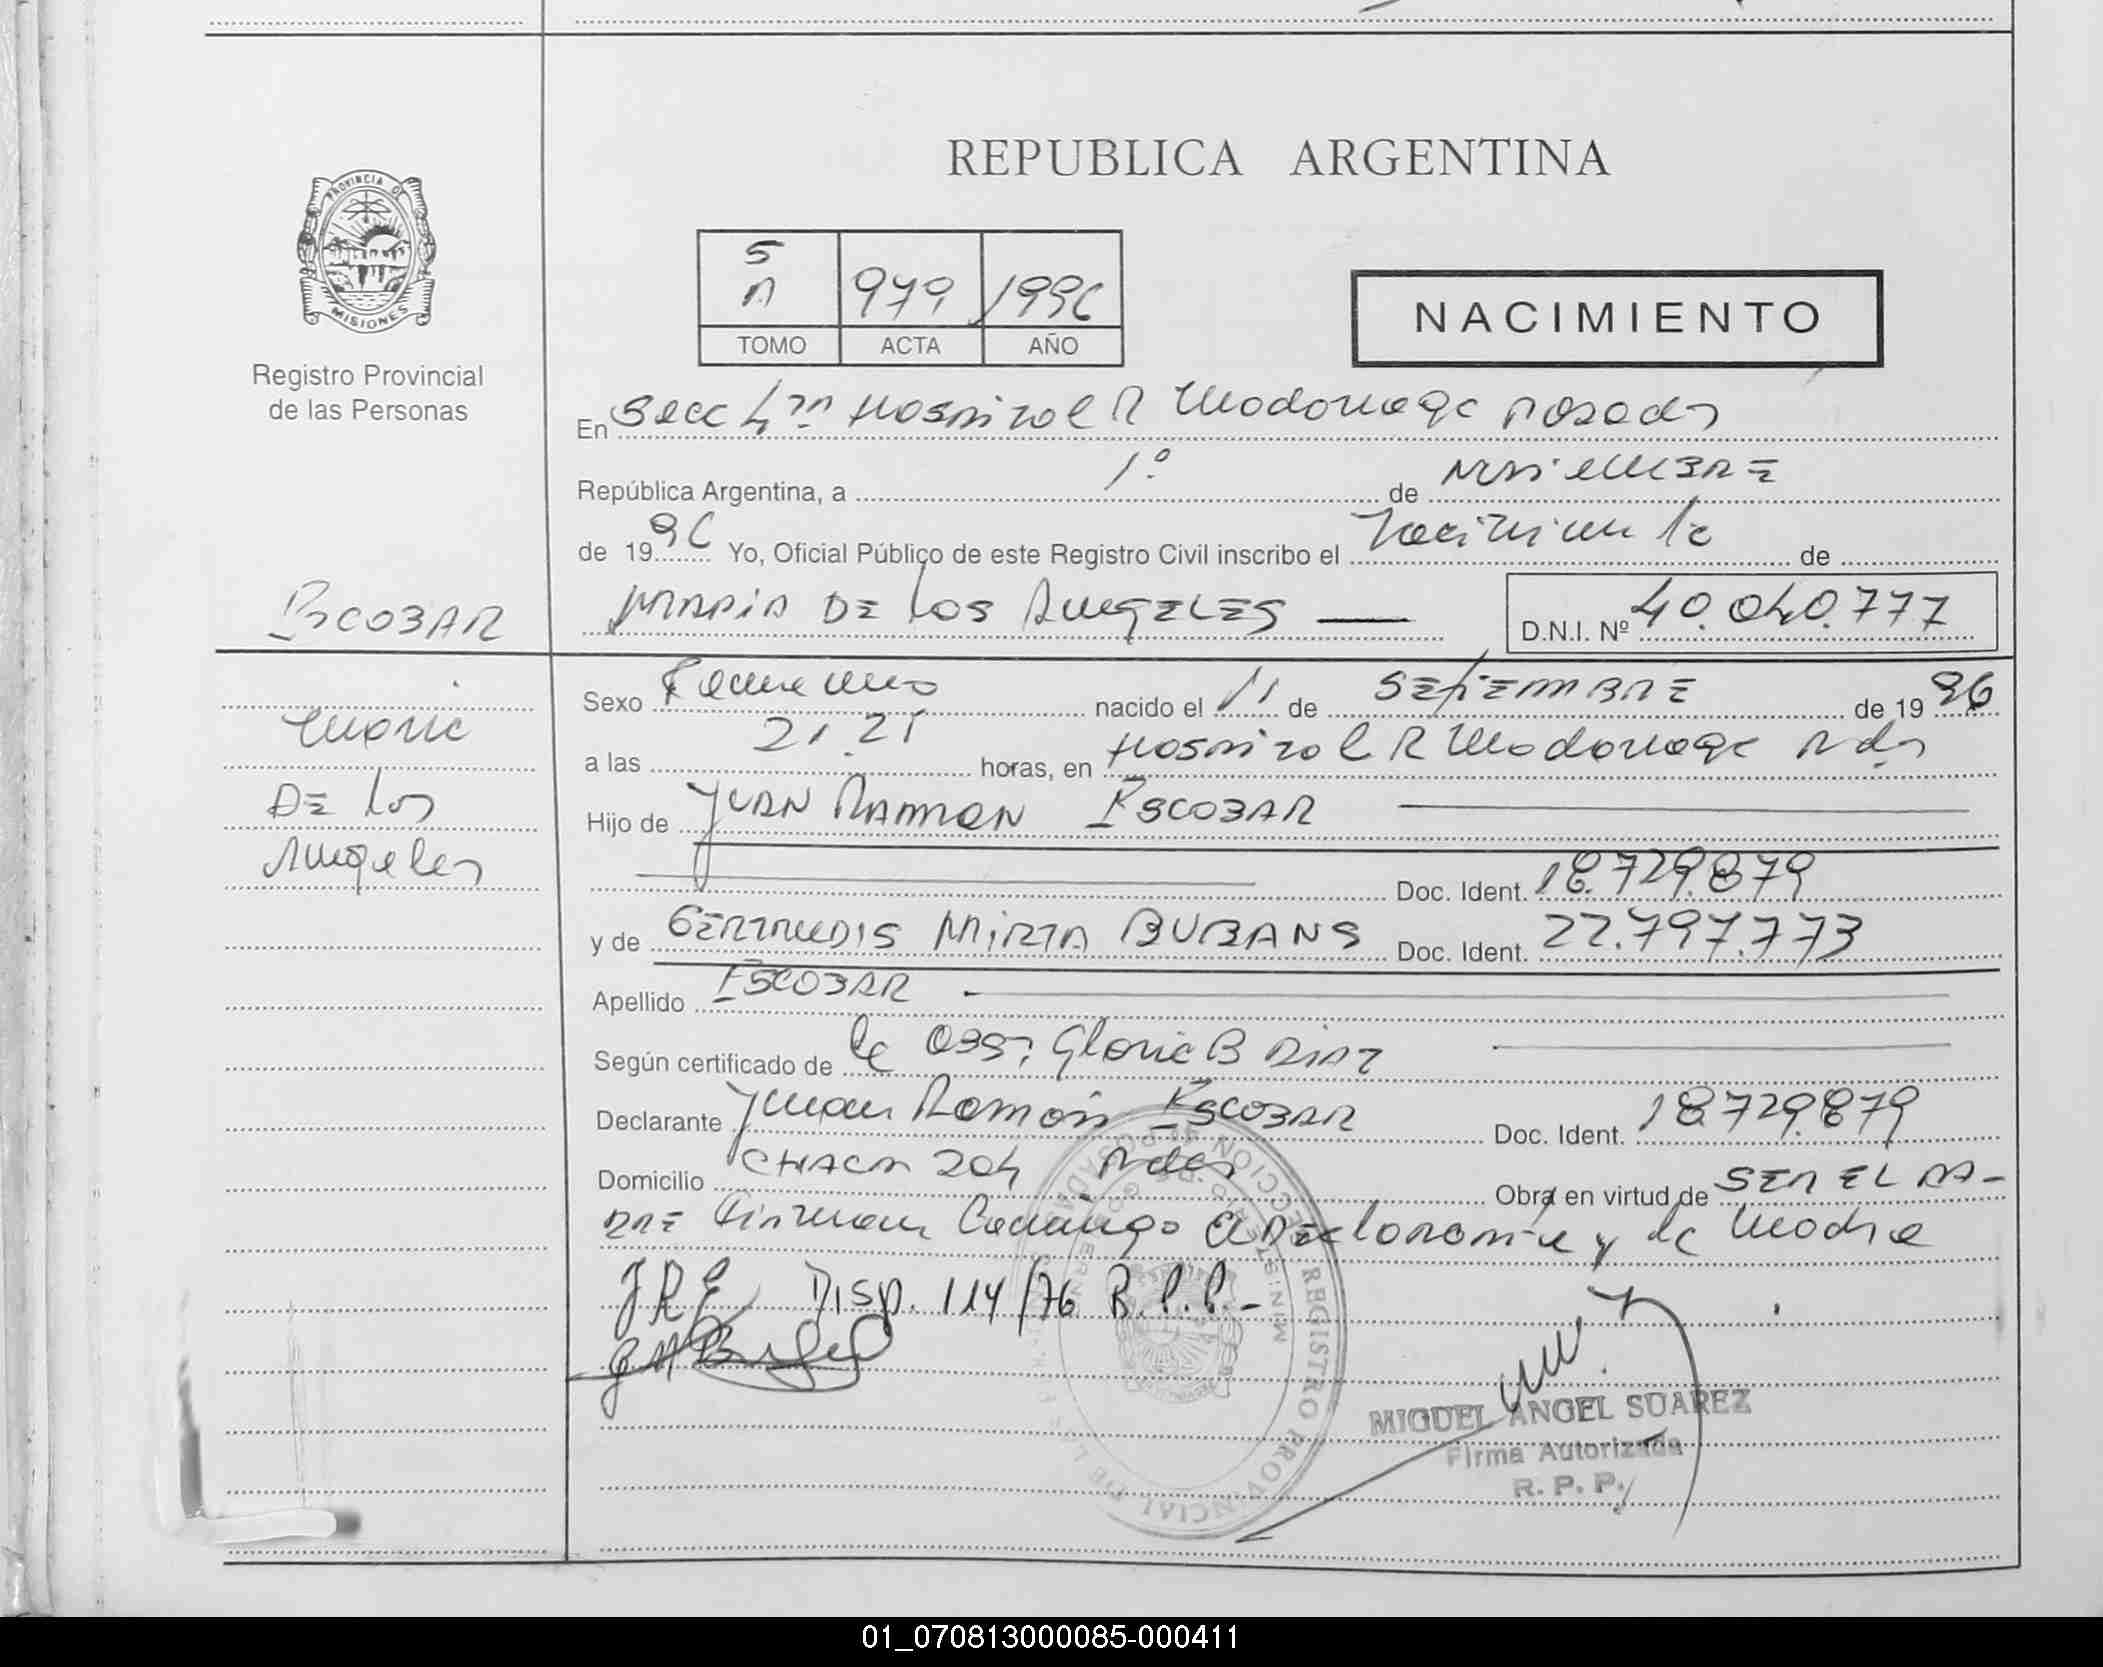 REPUBLICA ARGENTINA
PROVINCIA DE
MISIONES
Registro Provincial
de las Personas
5
A 979 1996
TOMO ACTA AÑO
NACIMIENTO
En Secc 4ta Hospital R Madariaga Posadas
República Argentina, a 1º de Noviembre
de 1996 Yo, Oficial Público de este Registro Civil inscribo el Nacimiento de
ESCOBAR
MARIA DE LOS ANGELES
D.N.I. Nº 40.040.777
Maria
DE Los
Angeles
Sexo Femenino nacido el 11 de SEPTIEMBRE de 1996
a las 21.25 horas, en Hospital R Madariaga Pdas
Hijo de JUAN RAMON ESCOBAR
Doc. Ident. 18.729.879
y de GERTRUDIS MIRTA BUBANS Doc. Ident. 22.797.773
Apellido ESCOBAR
Según certificado de la Obst Gloria B DIAZ
Declarante Juan Ramón ESCOBAR Doc. Ident. 18.729.879
Domicilio CHACRA 204 Pdas Obra en virtud de SER EL PA-
DRE Firman Conmigo el Declarante y la Madre
JRE Disp. 114/76 R.P.P.-
MIGUEL ANGEL SUAREZ
Firma Autorizada
R. P. P.
REGISTRO PROVINCIAL DE
SECCION 4a POSADAS
01_070813000085-000411